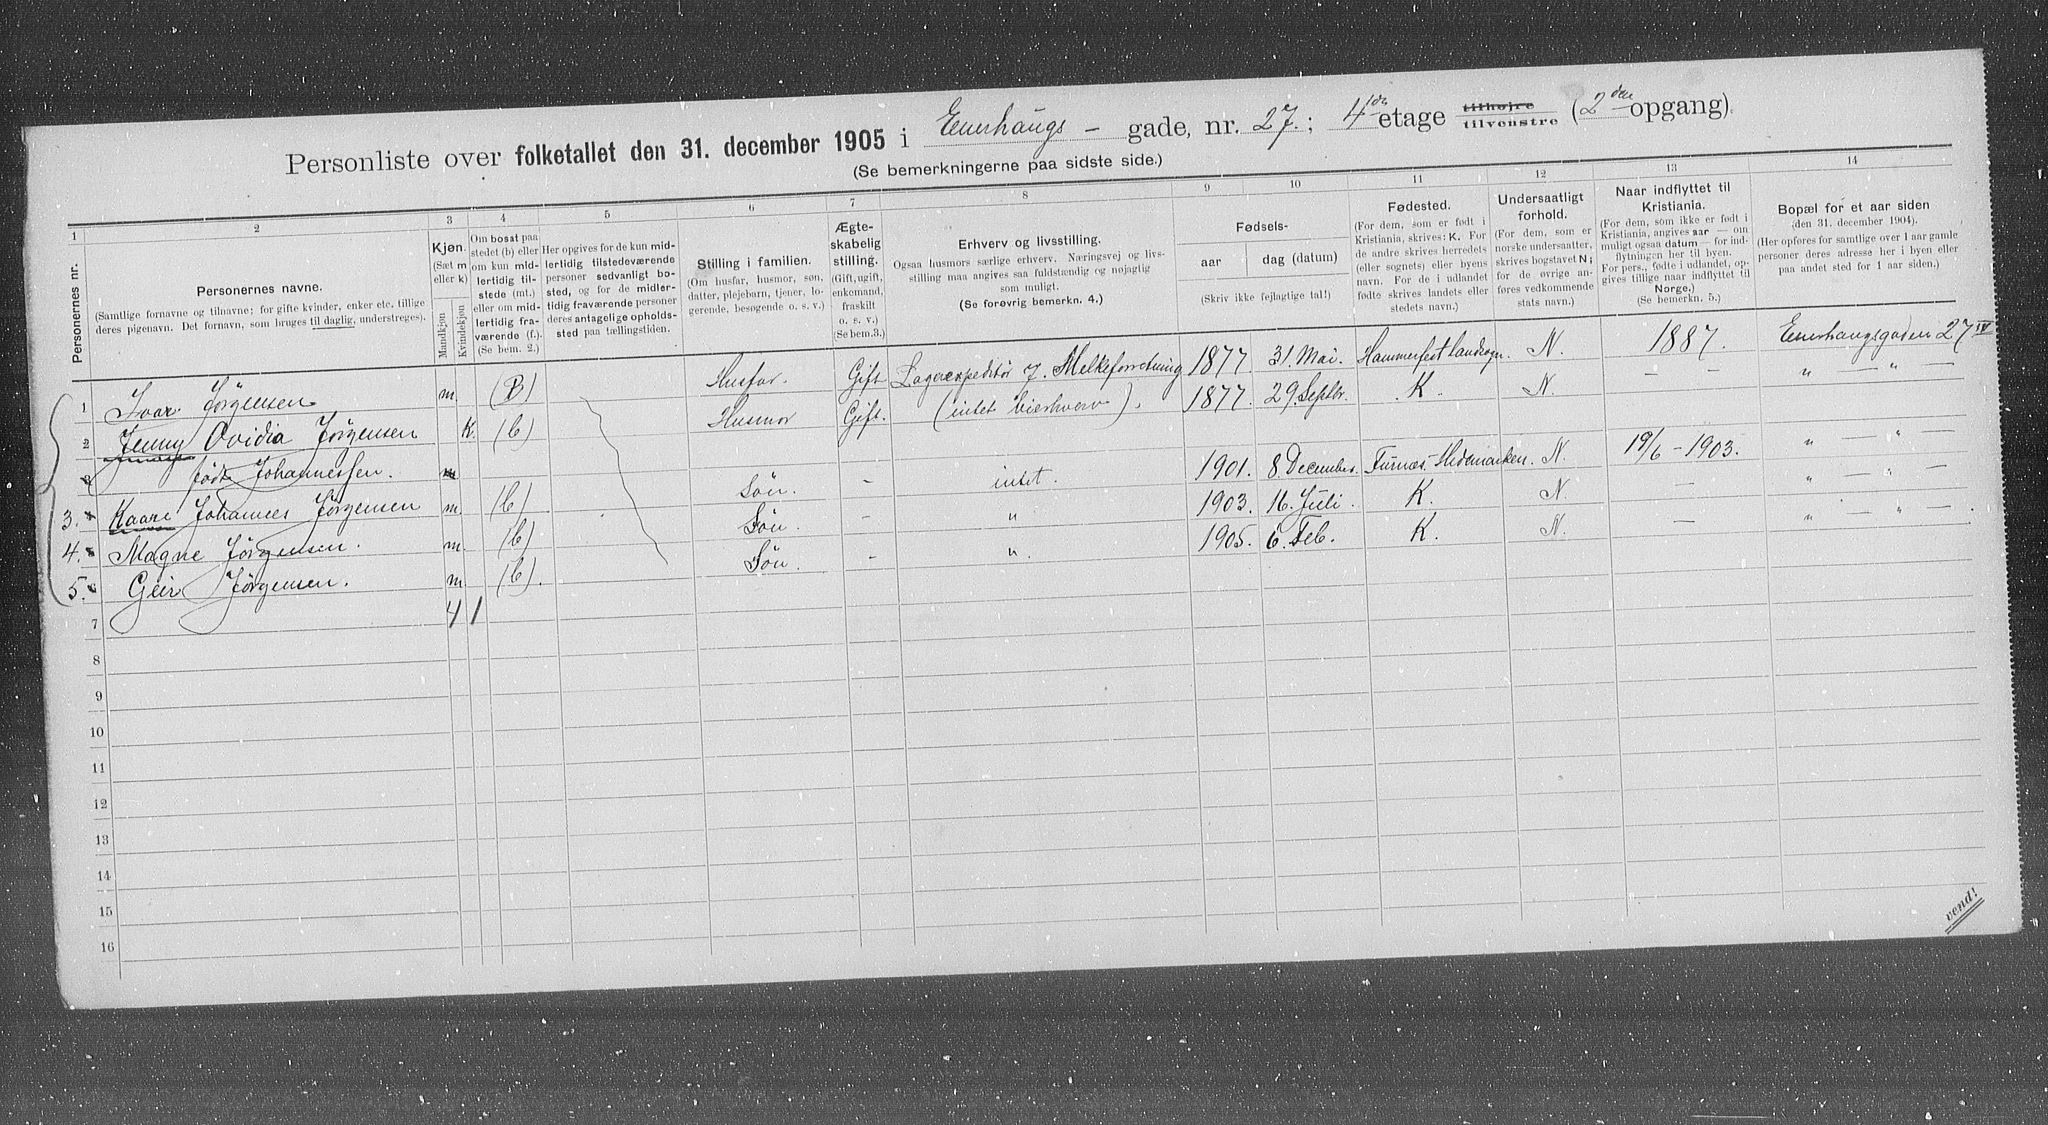 Personliste over folketallet den 31. december 1905 i Enerhaugs - gade, nr. 27.; 4de etage tilhøjre tilvenstre (2den opgang).
(Se bemerkningerne paa sidste side.)
1 2 3 4 5 6 7 8 9 10 11 12 13 14
Personernes nr.
Personernes navne.
(Samtlige fornavne og tilnavne; for gifte kvinder, enker etc. tillige deres pigenavn. Det fornavn, som bruges til daglig, understreges).
Kjøn.
(Sæt m eller k)
Mandkjøn
Kvindekjøn
Om bosat paa stedet (b) eller om kun midlertidig tilstede (mt.) eller om midlertidig fraværende (f.). (Se bem. 2.)
Her opgives for de kun midlertidig tilstedeværende personer sedvanligt bosted, og for de midlertidig fraværende personer deres antagelige opholdssted paa tællingstiden.
Stilling i familien.
(Om husfar, husmor, søn, datter, plejebarn, tjener, logerende, besøgende o. s. v.)
Ægteskabelig stilling.
(Gift, ugift, enkemand, fraskilt o. s. v.) (Se bem.3.)
Erhverv og livsstilling.
Ogsaa husmors særlige erhverv. Næringsvej og livsstilling maa angives saa fuldstændig og nøjagtig som muligt.
(Se forøvrig bemerkn. 4.)
Fødsels-
aar
dag (datum)
(Skriv ikke fejlagtige tal!)
Fødested.
(For dem, som er født i Kristiania, skrives: K. For de andre skrives herredets (eller sognets) eller byens navn. For de i udlandet fødte skrives landets eller stedets navn.)
Undersaatligt forhold.
(For dem, som er norske undersaatter, skrives bogstavet N; for de øvrige anføres vedkommende stats navn.)
Naar indflyttet til Kristiania.
(For dem, som ikke er født i Kristiania, angives aar — om muligt ogsaa datum — for indflytningen her til byen. For pers., fødte i udlandet, opgives tillige naar indflyttet til Norge.)
(Se bemerkn. 5.)
Bopæl for et aar siden
(den 31. december 1904).
(Her opføres for samtlige over 1 aar gamle personer deres adresse her i byen eller paa andet sted for 1 aar siden.)
1 Ivar Jörgensen m. (B) Husfar. Gift Lagerexpeditör f. Melkeforretning 1877 31. Mai. Hammerfest landsogn. N. 1887. Enerhaugsgaden 27 IV
2 Jenny Ovidia Jørgensen K. (b) Husmor Gift. (intet bierhverv). 1877. 29. Septbr. K. N. — — " — " —
født Johannessen.
3. Kaare Johannes Jørgensen m (b) Søn. - intet. 1901. 8. December. Furnæs. Hedemarken. N. 19/6 - 1903. " — " —
4. Magne Jørgensen. m. (b) Søn. - " 1903. 16. Juli. K. N. — " — " —
5. Geir Jørgensen. m (b). Søn. - ". 1905. 6. Feb. K. N. — " — " — .
7 4 1
8
9
10
11
12
13
14
15
16
vend!